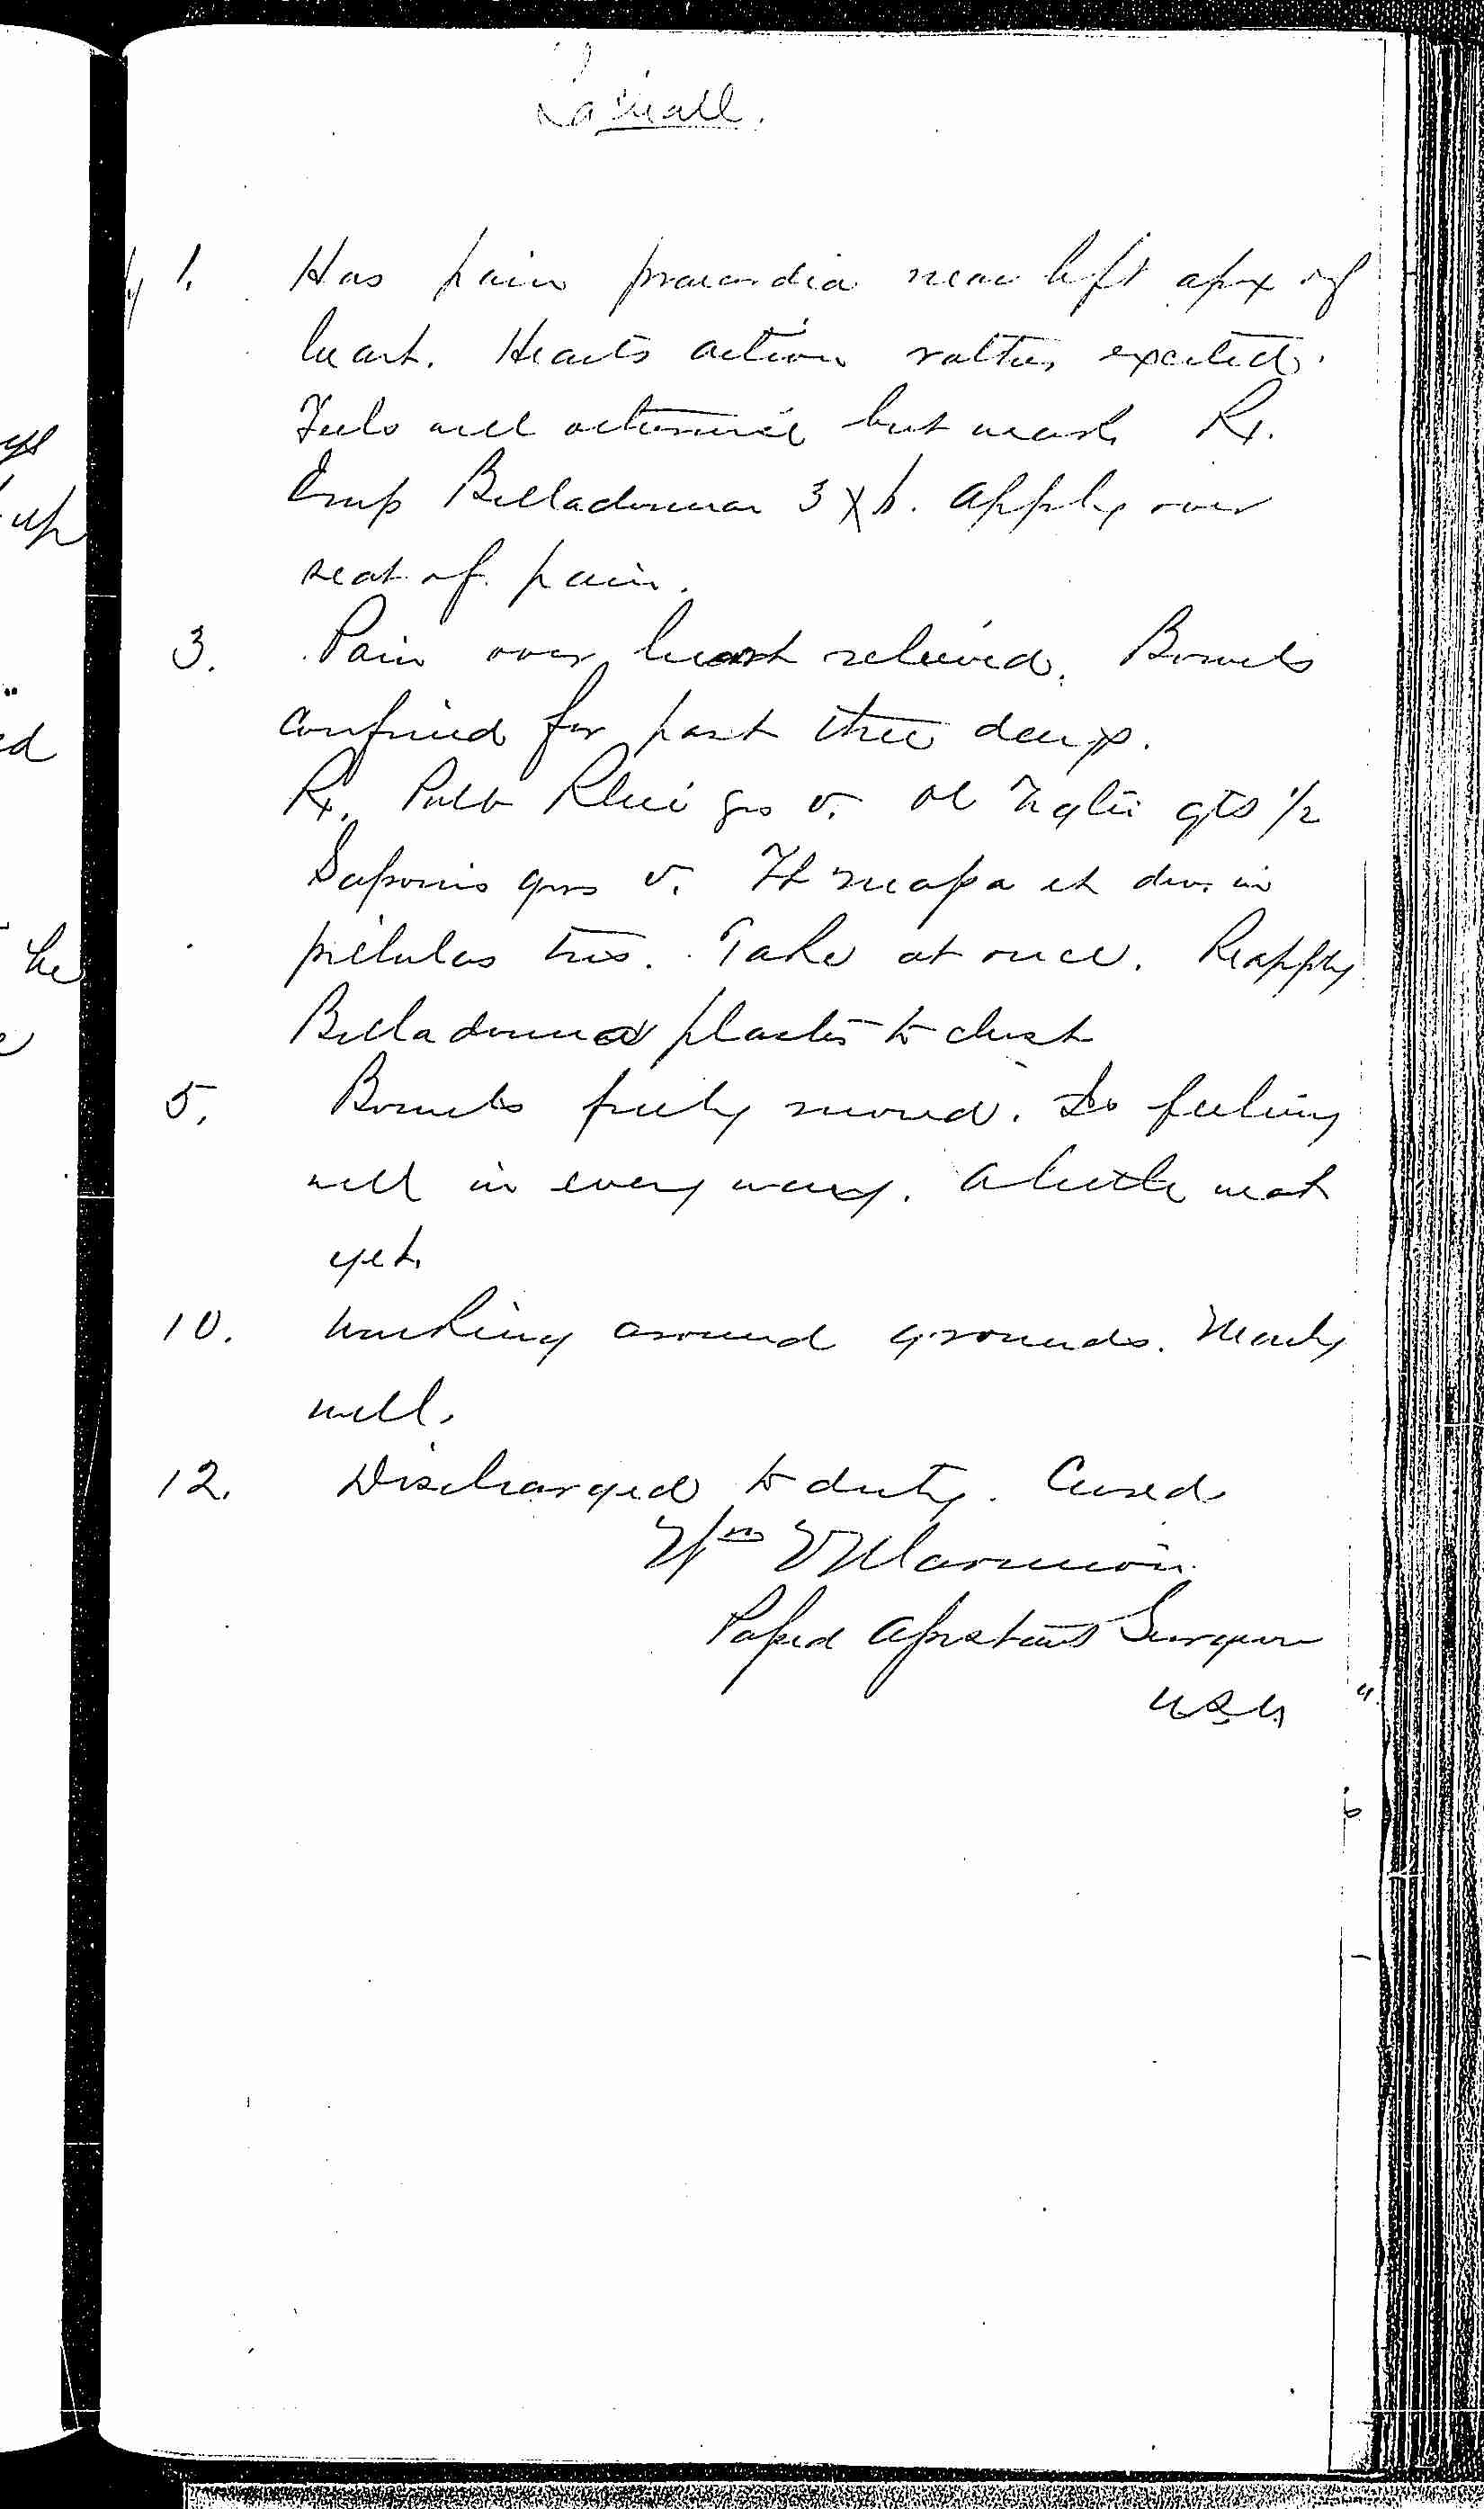 1. Has pain praecordia near left apex of
heart. Hearts action rather excited.
Feels well otherwise but weak Rx.
Emp Belladonnae 3 X 6. apply over
seat of pain.
3. Pain over heart relieved. Bowels
confined for past three days.
Rx. Pulv Rhei grs v. Ol Tiglii gtts 1/2
Saponis grs v. Ft massa et div. in
pilulas tres. Take at once. Reapply
Belladonna plaster to chest
5. Bowels freely moved. Is feeling
well in every way. A little weak
yet.
10. Walking around grounds. Nearly
well.
12. Discharged to duty. Cured
Wm V Marmion
Passed Assistant Surgeon
U.S.N.
up
ed
he